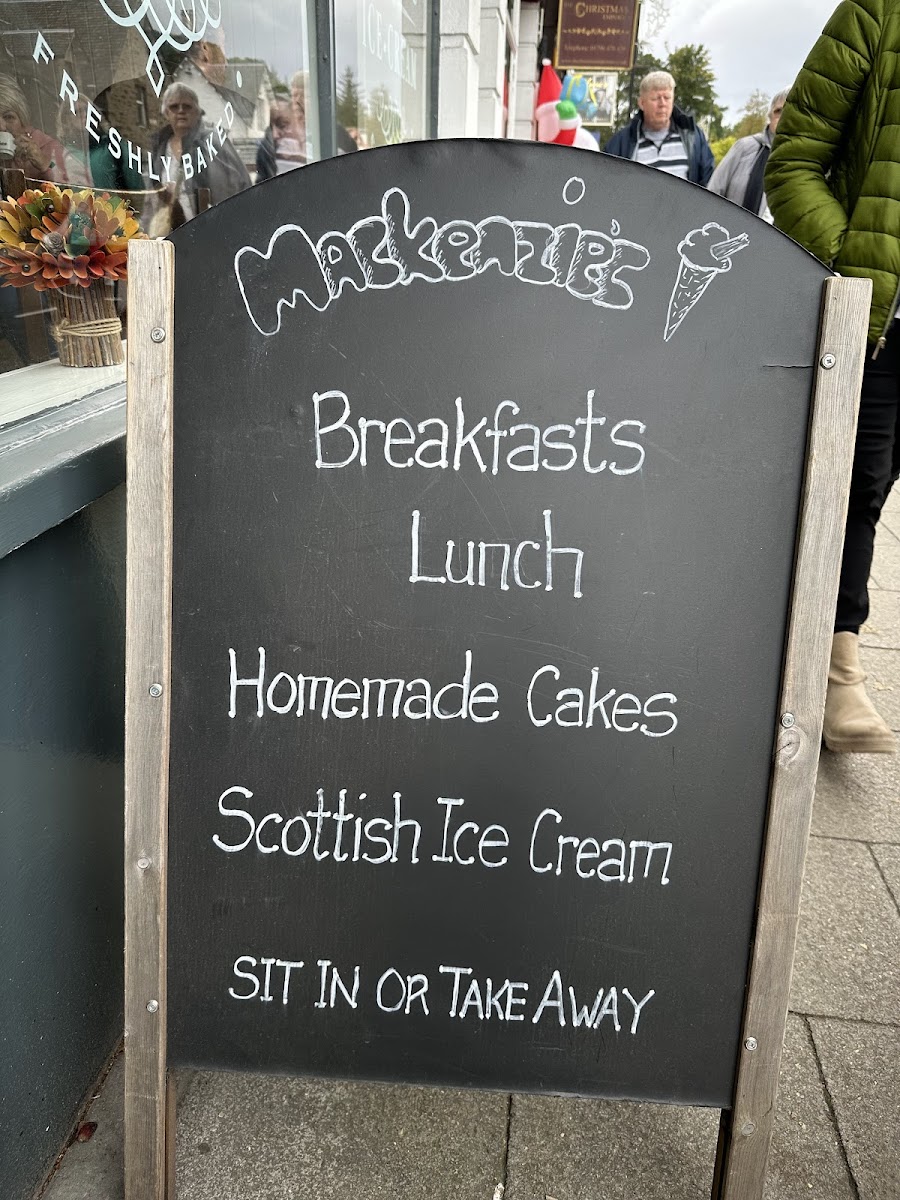 FRESHLY BAKED
ICE-CREAM
CHRISTMAS
Mackenzie's
Breakfasts
Lunch
Homemade Cakes
Scottish Ice Cream
SIT IN OR TAKE AWAY